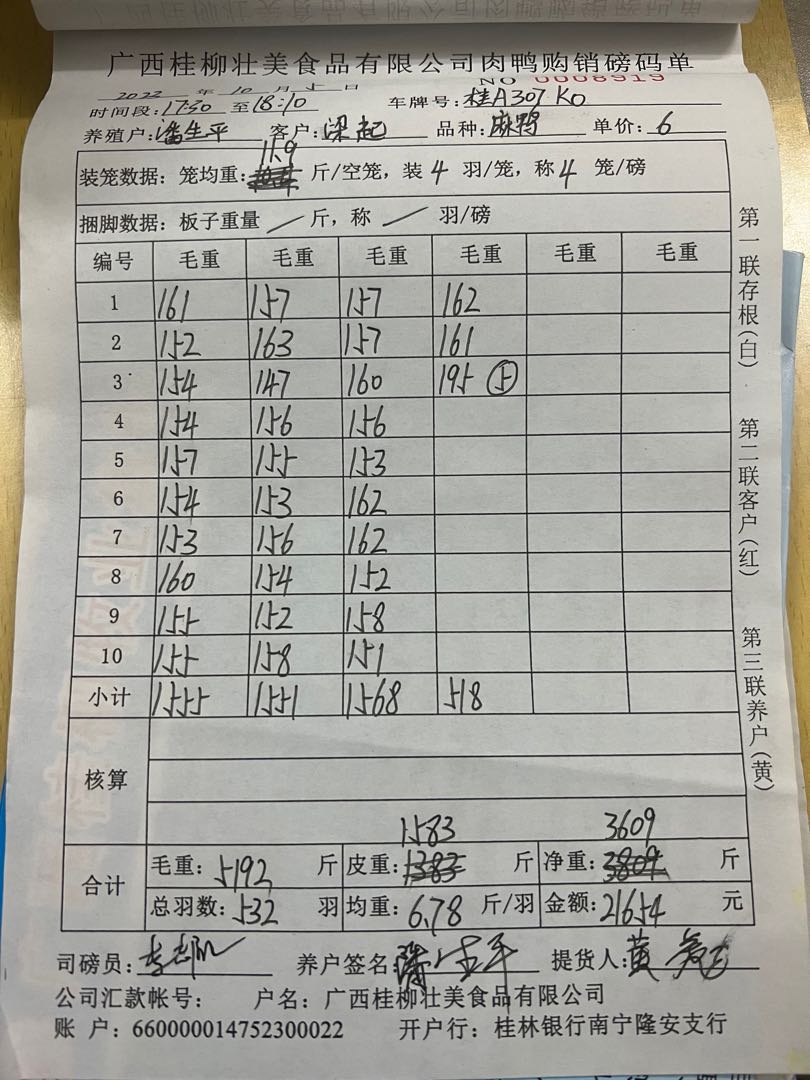 广西桂柳壮美食品有限公司肉鸭购销磅码单
NO 0008919
2022 年 10 月 5 日
时间段:17:30 至18:10 车牌号:桂A307K0
养殖户:潘生平 客户:梁起 品种:麻鸭 单价:6
11.9
装笼数据:笼均重: 斤/空笼,装4 羽/笼,称4 笼/磅
捆脚数据:板子重量 / 斤,称 / 羽/磅
编号 毛重 毛重 毛重 毛重 毛重 毛重
1 161 157 157 162
2 152 163 157 161
3 154 147 160 195 ⑤
4 154 156 156
5 157 155 153
6 154 153 162
7 153 156 162
8 160 154 152
9 155 152 158
10 155 158 151
小计 1555 1551 1568 518
核算
1583 3609
合计 毛重:5192 斤 皮重:1383 斤 净重:3809 斤
总羽数:532 羽 均重:6.78 斤/羽 金额:21654 元
司磅员: 养户签名:潘生平 提货人:黄
公司汇款帐号: 户名:广西桂柳壮美食品有限公司
账 户:660000014752300022 开户行:桂林银行南宁隆安支行
第一联存根(白)
第二联客户(红)
第三联养户(黄)